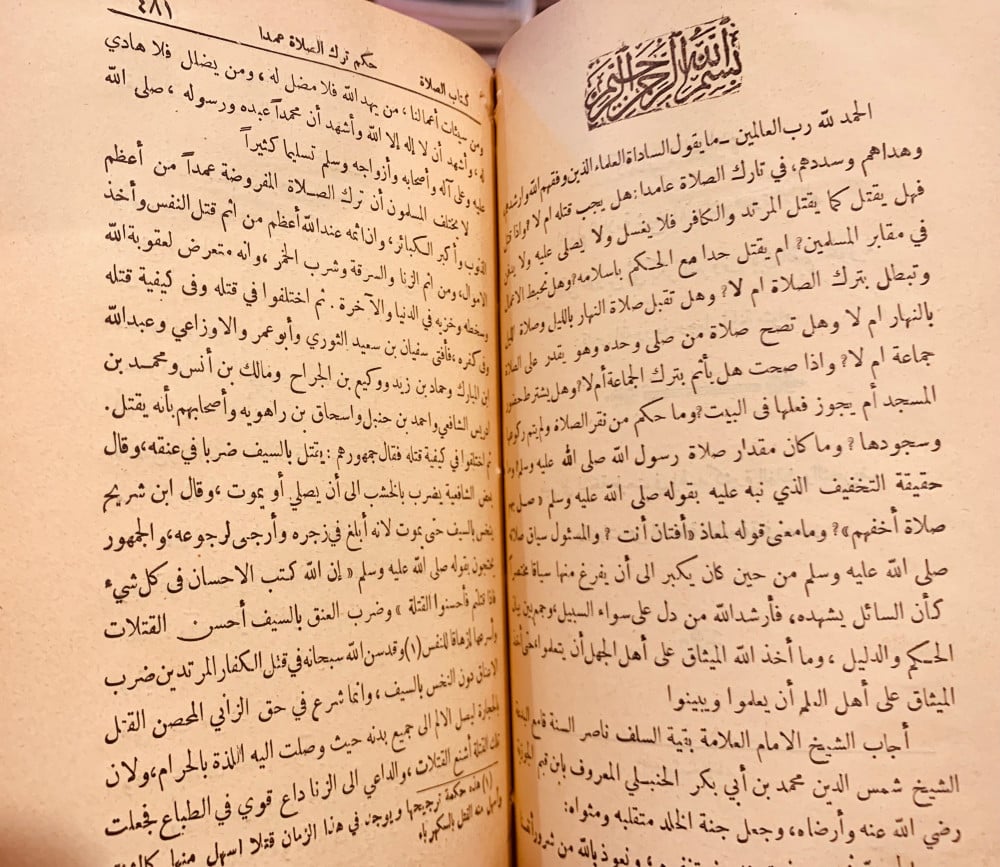 بسم الله الرحمن الرحيم
الحمد لله رب العالمين ــ ما يقول السادة العلماء الذين وفقهم الله وارشدهم
وهداهم وسددهم، في تارك الصلاة عامدا: هل يجب قتله ام لا؟ واذا قتل
فهل يقتل كما يقتل المرتد والكافر فلا يغسل ولا يصلى عليه ولا يدفن
في مقابر المسلمين؟ ام يقتل حدا مع الحكم باسلامه؟ وهل تحبط الاعمال
وتبطل بترك الصلاة ام لا؟ وهل تقبل صلاة النهار بالليل وصلاة الليل
بالنهار ام لا وهل تصح صلاة من صلى وحده وهو يقدر على الصلاة
جماعة ام لا؟ واذا صحت هل يأثم بترك الجماعة أم لا؟ وهل يشترط حضور
المسجد أم يجوز فعلها فى البيت؟ وما حكم من نقر الصلاة ولم يتم ركوعها
وسجودها؟ وما كان مقدار صلاة رسول الله صلى الله عليه وسلم؟ وما
حقيقة التخفيف الذي نبه عليه بقوله صلى الله عليه وسلم « صل بهم
صلاة أخفهم»؟ وما معنى قوله لمعاذ «أفتان أنت؟ والمسئول سياق صلاة
صلى الله عليه وسلم من حين كان يكبر الى أن يفرغ منها سياقا مختصرا
كأن السائل يشهده، فأرشد الله من دل على سواء السبيل، وجمع بين
الحكم والدليل، وما أخذ الله الميثاق على أهل الجهل أن يتعلموا حتى أخذ
الميثاق على أهل العلم أن يعلموا ويبينوا
أجاب الشيخ الامام العلامة بقية السلف ناصر السنة قامع البدعة
الشيخ شمس الدين محمد بن أبي بكر الحنبلي المعروف بابن قيم الجوزية
رضي الله عنه وأرضاه، وجعل جنة الخلد متقلبه ومثواه:
ونعوذ بالله من شرور أنفسنا
كتاب الصلاة حكم ترك الصلاة عمدا ٤٨١
ومن سيئات أعمالنا، من يهد الله فلا مضل له، ومن يضلل فلا هادي
له، وأشهد أن لا إله إلا الله وأشهد أن محمداً عبده ورسوله، صلى الله
عليه وعلى آله وأصحابه وأزواجه وسلم تسليما كثيراً
لا يختلف المسلمون أن ترك الصلاة المفروضة عمداً من أعظم
الذنوب وأكبر الكبائر، وان اثمه عند الله أعظم من اثم قتل النفس وأخذ
الاموال، ومن اثم الزنا والسرقة وشرب الخمر، وانه متعرض لعقوبة الله
وسخطه وخزيه في الدنيا والآخرة. ثم اختلفوا في قتله وفى كيفية قتله
وفى كفره، فأفتى سفيان بن سعيد الثوري وأبو عمر والاوزاعي وعبدالله
ابن المبارك وحماد بن زيد ووكيع بن الجراح ومالك بن أنس ومحمد بن
ادريس الشافعي واحمد بن حنبل واسحاق بن راهويه وأصحابهم بأنه يقتل.
ثم اختلفوا في كيفية قتله فقال جمهورهم: يقتل بالسيف ضربا في عنقه، وقال
بعض الشافعية يضرب بالخشب الى أن يصلي أو يموت، وقال ابن شريح
ينخس بالسيف حتى يموت لانه أبلغ في زجره وأرجى لرجوعه، والجمهور
يحتجون بقوله صلى الله عليه وسلم « إن الله كتب الاحسان فى كل شيء
فاذا قتلتم فأحسنوا القتلة » وضرب العنق بالسيف أحسن القتلات
وأسرعها إزهاقا للنفس(١) وقد سن الله سبحانه في قتل الكفار المرتدين ضرب
الاعناق دون النخس بالسيف، وانما شرع في حق الزاني المحصن القتل
بالحجارة ليصل الالم الى جميع بدنه حيث وصلت اليه اللذة بالحرام، ولان
تلك القتلة أشنع القتلات، والداعي الى الزنا داع قوي في الطباع فجعلت
(١) هذه حكمة ترجيحها ويوجد في هذا الزمان قتلا اسهل منها كالشنق
وأسهل منه القتل بالكهرباء